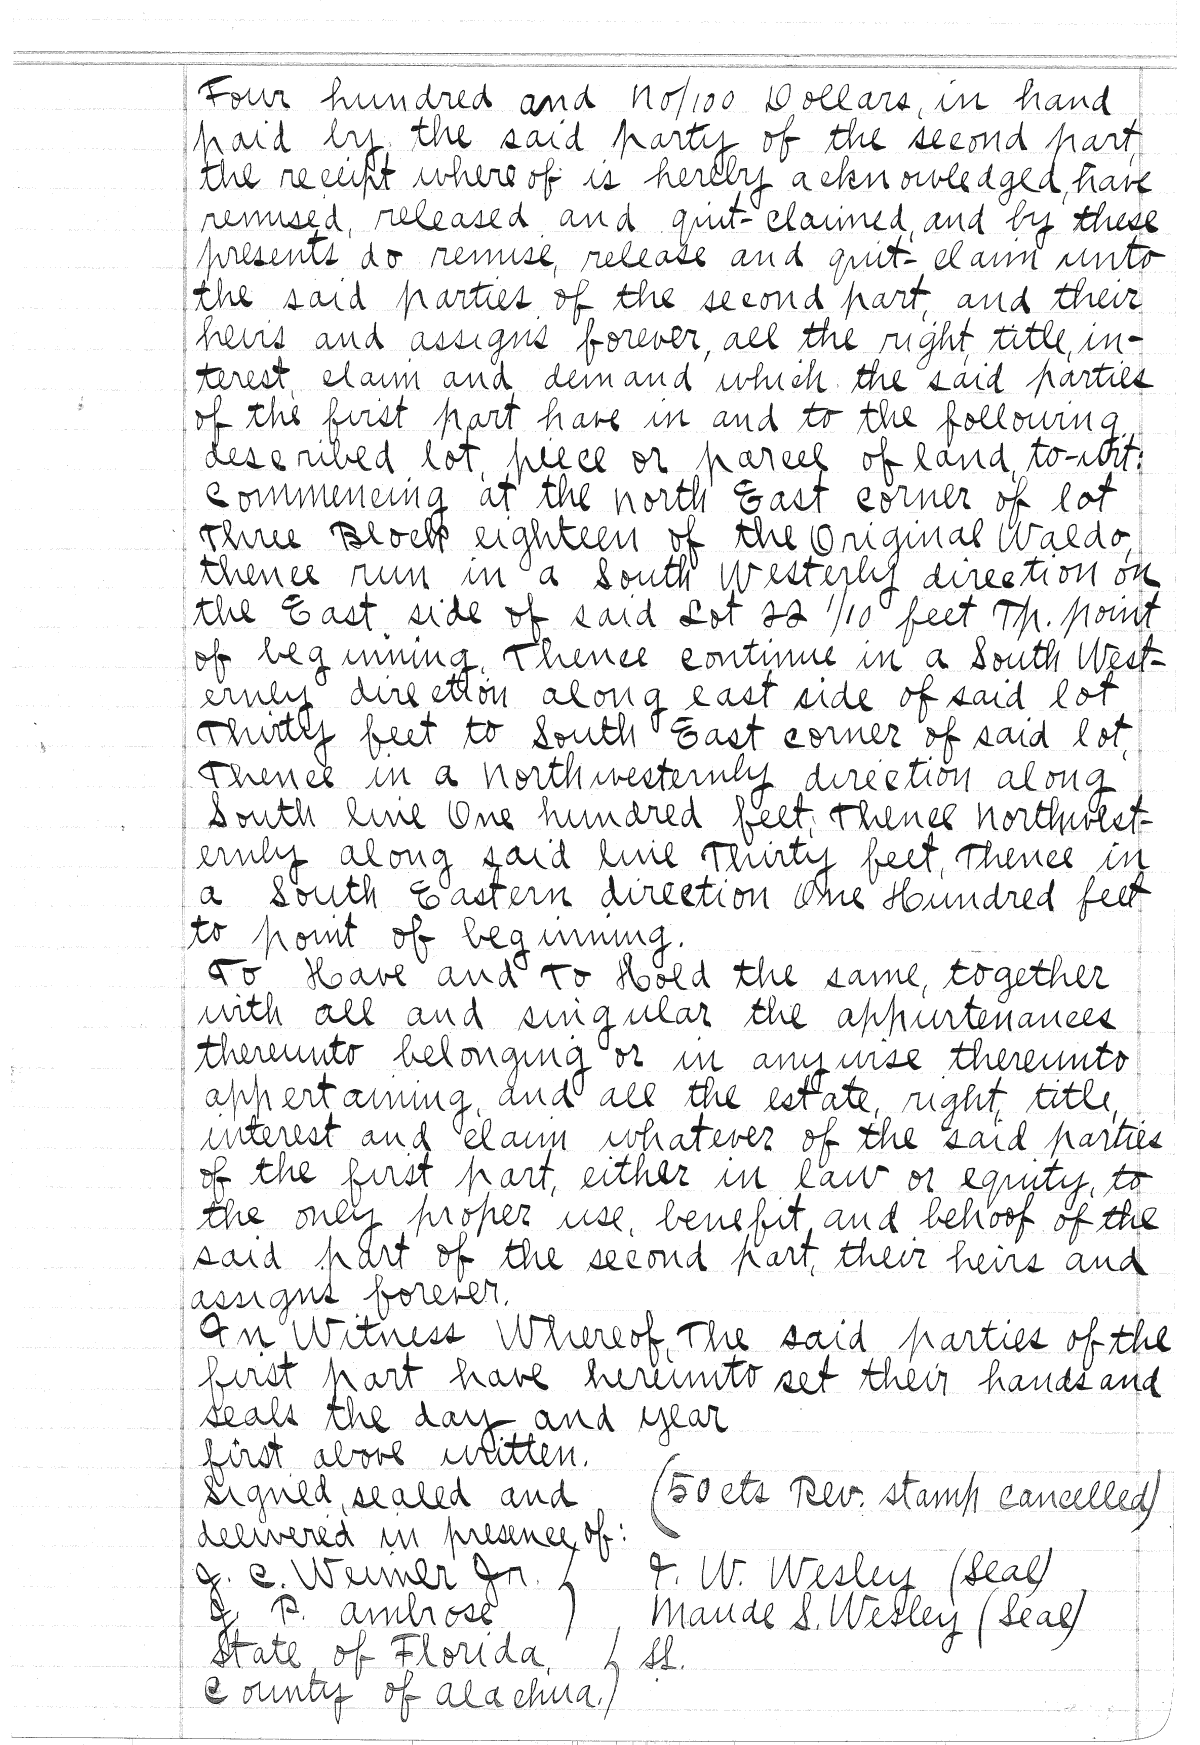 Four hundred and no/100 Dollars, in hand
paid by the said party of the second part,
the receipt where of is hereby acknowledged, have
remised, released and quit-claimed, and by these
presents do remise, release and quit-claim unto
the said parties of the second part, and their
heirs and assigns forever, all the right, title, in-
terest, claim and demand which the said parties
of the first part have in and to the following
described lot, piece or parcel of land, to-wit:
Commencing at the north East corner of lot
Three Block eighteen of the Original Waldo,
thence run in a South Westerly direction on
the East side of said Lot 22 1/10 feet Tp. point
of beginning, Thence continue in a South West-
ernly direction along east side of said lot
Thirty feet to South East corner of said lot,
Thence in a Northwesternly direction along
South line One hundred feet; Thence Northwest-
ernly along said line Thirty feet, Thence in
a South Eastern direction One Hundred feet
to point of beginning.
To Have and To Hold the same, together
with all and singular the appurtenances
thereunto belonging or in anywise thereunto
appertaining, and all the estate, right, title,
interest and claim whatever of the said parties
of the first part, either in law or equity, to
the only proper use, benefit, and behoof of the
said part of the second part, their heirs and
assigns forever.
In Witness Whereof, The said parties of the
first part have hereunto set their hands and
seals the day and year
first above written.
Signed, sealed and (50 cts Rev. stamp cancelled)
delivered in presence of:
J. C. Weimer Jr. ) I. W. Wesley (Seal)
J. P. Ambrose ) Maude S. Wesley (Seal)
State of Florida, ) SS.
County of Alachua. )